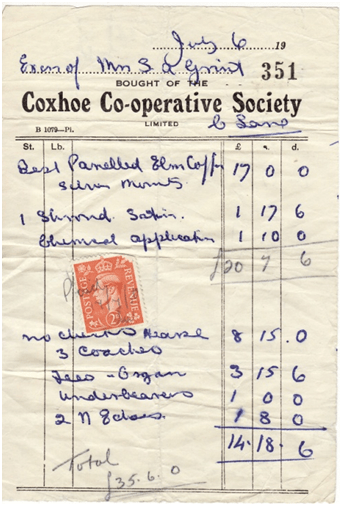 July 6 19
Exors of Mrs S A Grint 351
BOUGHT OF THE
Coxhoe Co-operative Society
LIMITED
B 1079—Pl.
St. Lb. £ s. d.
Best Panelled Elm Coff 17 0 0
Silver Mounts
1 Shroud Satin. 1 17 6
Chemical application 1 10 0
£20 7 6
Paid
POSTAGE REVENUE
2½
Hearse 8 15.0
3 Coaches
Fees - Organ 3 15 6
Underbearers 1 0 0
2 N 1 8 0
14.18.6
Total
£35.6.0